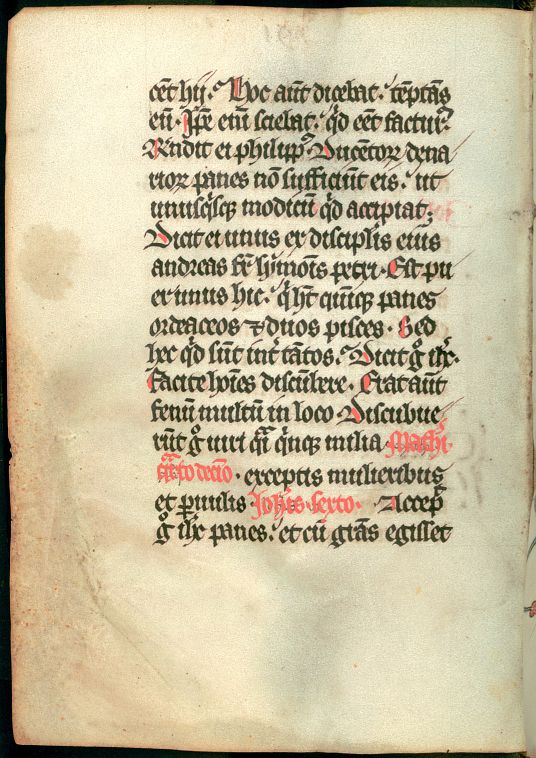 cēt hij. Hoc aūt dicebat. tēptās
eū. Ip̄e enī sciebat. qd̄ eēt factur᷒.
R̄ndit ei philipp᷒. Ducētoꝝ dena
rioꝝ panes nō sufficiūt eis. ut
unusq̄sq; modicū qd̄ accipiat;
Dicit ei unus ex disciplīs eius
andreas fr̄ symōis petri. Est pu
er unus hic. q̄ hꝫ quīq; panes
ordeaceos ⁊ duos pisces. Sed
hec qd̄ sūt int᷑ tātos. Dicit g̊ ihc̄.
Facite hoīes discūbere. Erat aūt
fenū multū in loco. Discubue
rūt g̊ uiri q̄si q̄nq; milia. Mathī
q̄rto decīo. exceptis mulieribus
et ꝑuulis Ioh̄is sexto. Accep̄
g̊ ihc̄ panes. et cū grās egisset